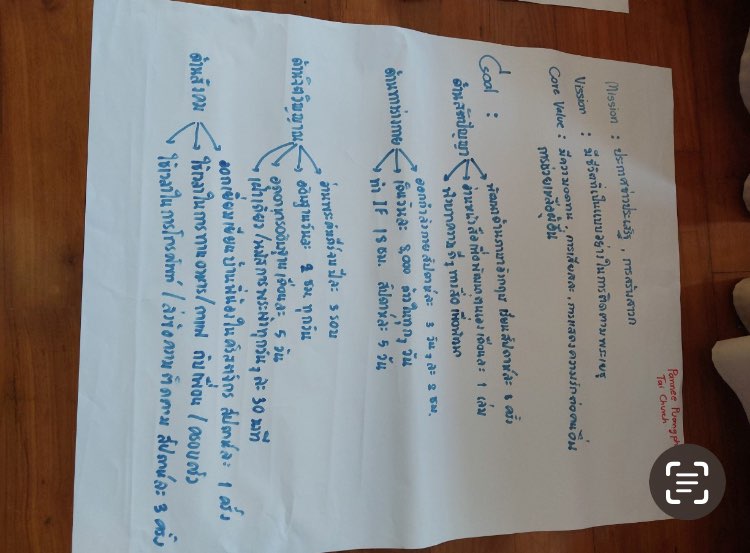 Pannee Puangph
Tai Church
Mission : ประกาศข่าวประเสริฐ, การสร้างสาวก
Vission : มีชีวิตที่เป็นแบบอย่างในการติดตามพระเยซู
Core Value : มีความอดทน, การเสียสละ, การแสดงความรักต่อคนอื่น
การช่วยเหลือผู้อื่น
Goal :
พัฒนาด้านภาษาอังกฤษ เรียนสัปดาห์ละ ครั้ง
ด้านสติปัญญา อ่านหนังสือที่พัฒนาตนเอง เดือนละ 1 เล่ม
ออกกำลังกาย สัปดาห์ละ 3 วัน, ละ 2 ชม.
ด้านทางร่างกาย เดินวันละ 8,000 ก้าว ทุกๆ วัน
ทำ IF 18 ชม. สัปดาห์ละ 5 วัน
อ่านพระคัมภีร์จบ ปีละ 3 รอบ
ด้านจิตวิญญาณ อธิษฐานวันละ 2 ชม. ทุกวัน
อดอาหารอธิษฐานเดือนละ 5 วัน
เฝ้าเดี่ยว/ นมัสการพระเจ้าทุกวัน, ละ 30 นาที
ออกเยี่ยมเยียนบ้านพี่น้องในคริสตจักร สัปดาห์ละ 1 ครั้ง
ด้านสังคม ใช้เวลาในการทานอาหาร/กาแฟ กับเพื่อน / ครอบครัว
ใช้เวลาในการโทรศัพท์ / ส่งข้อความติดตาม สัปดาห์ละ 3 ครั้ง